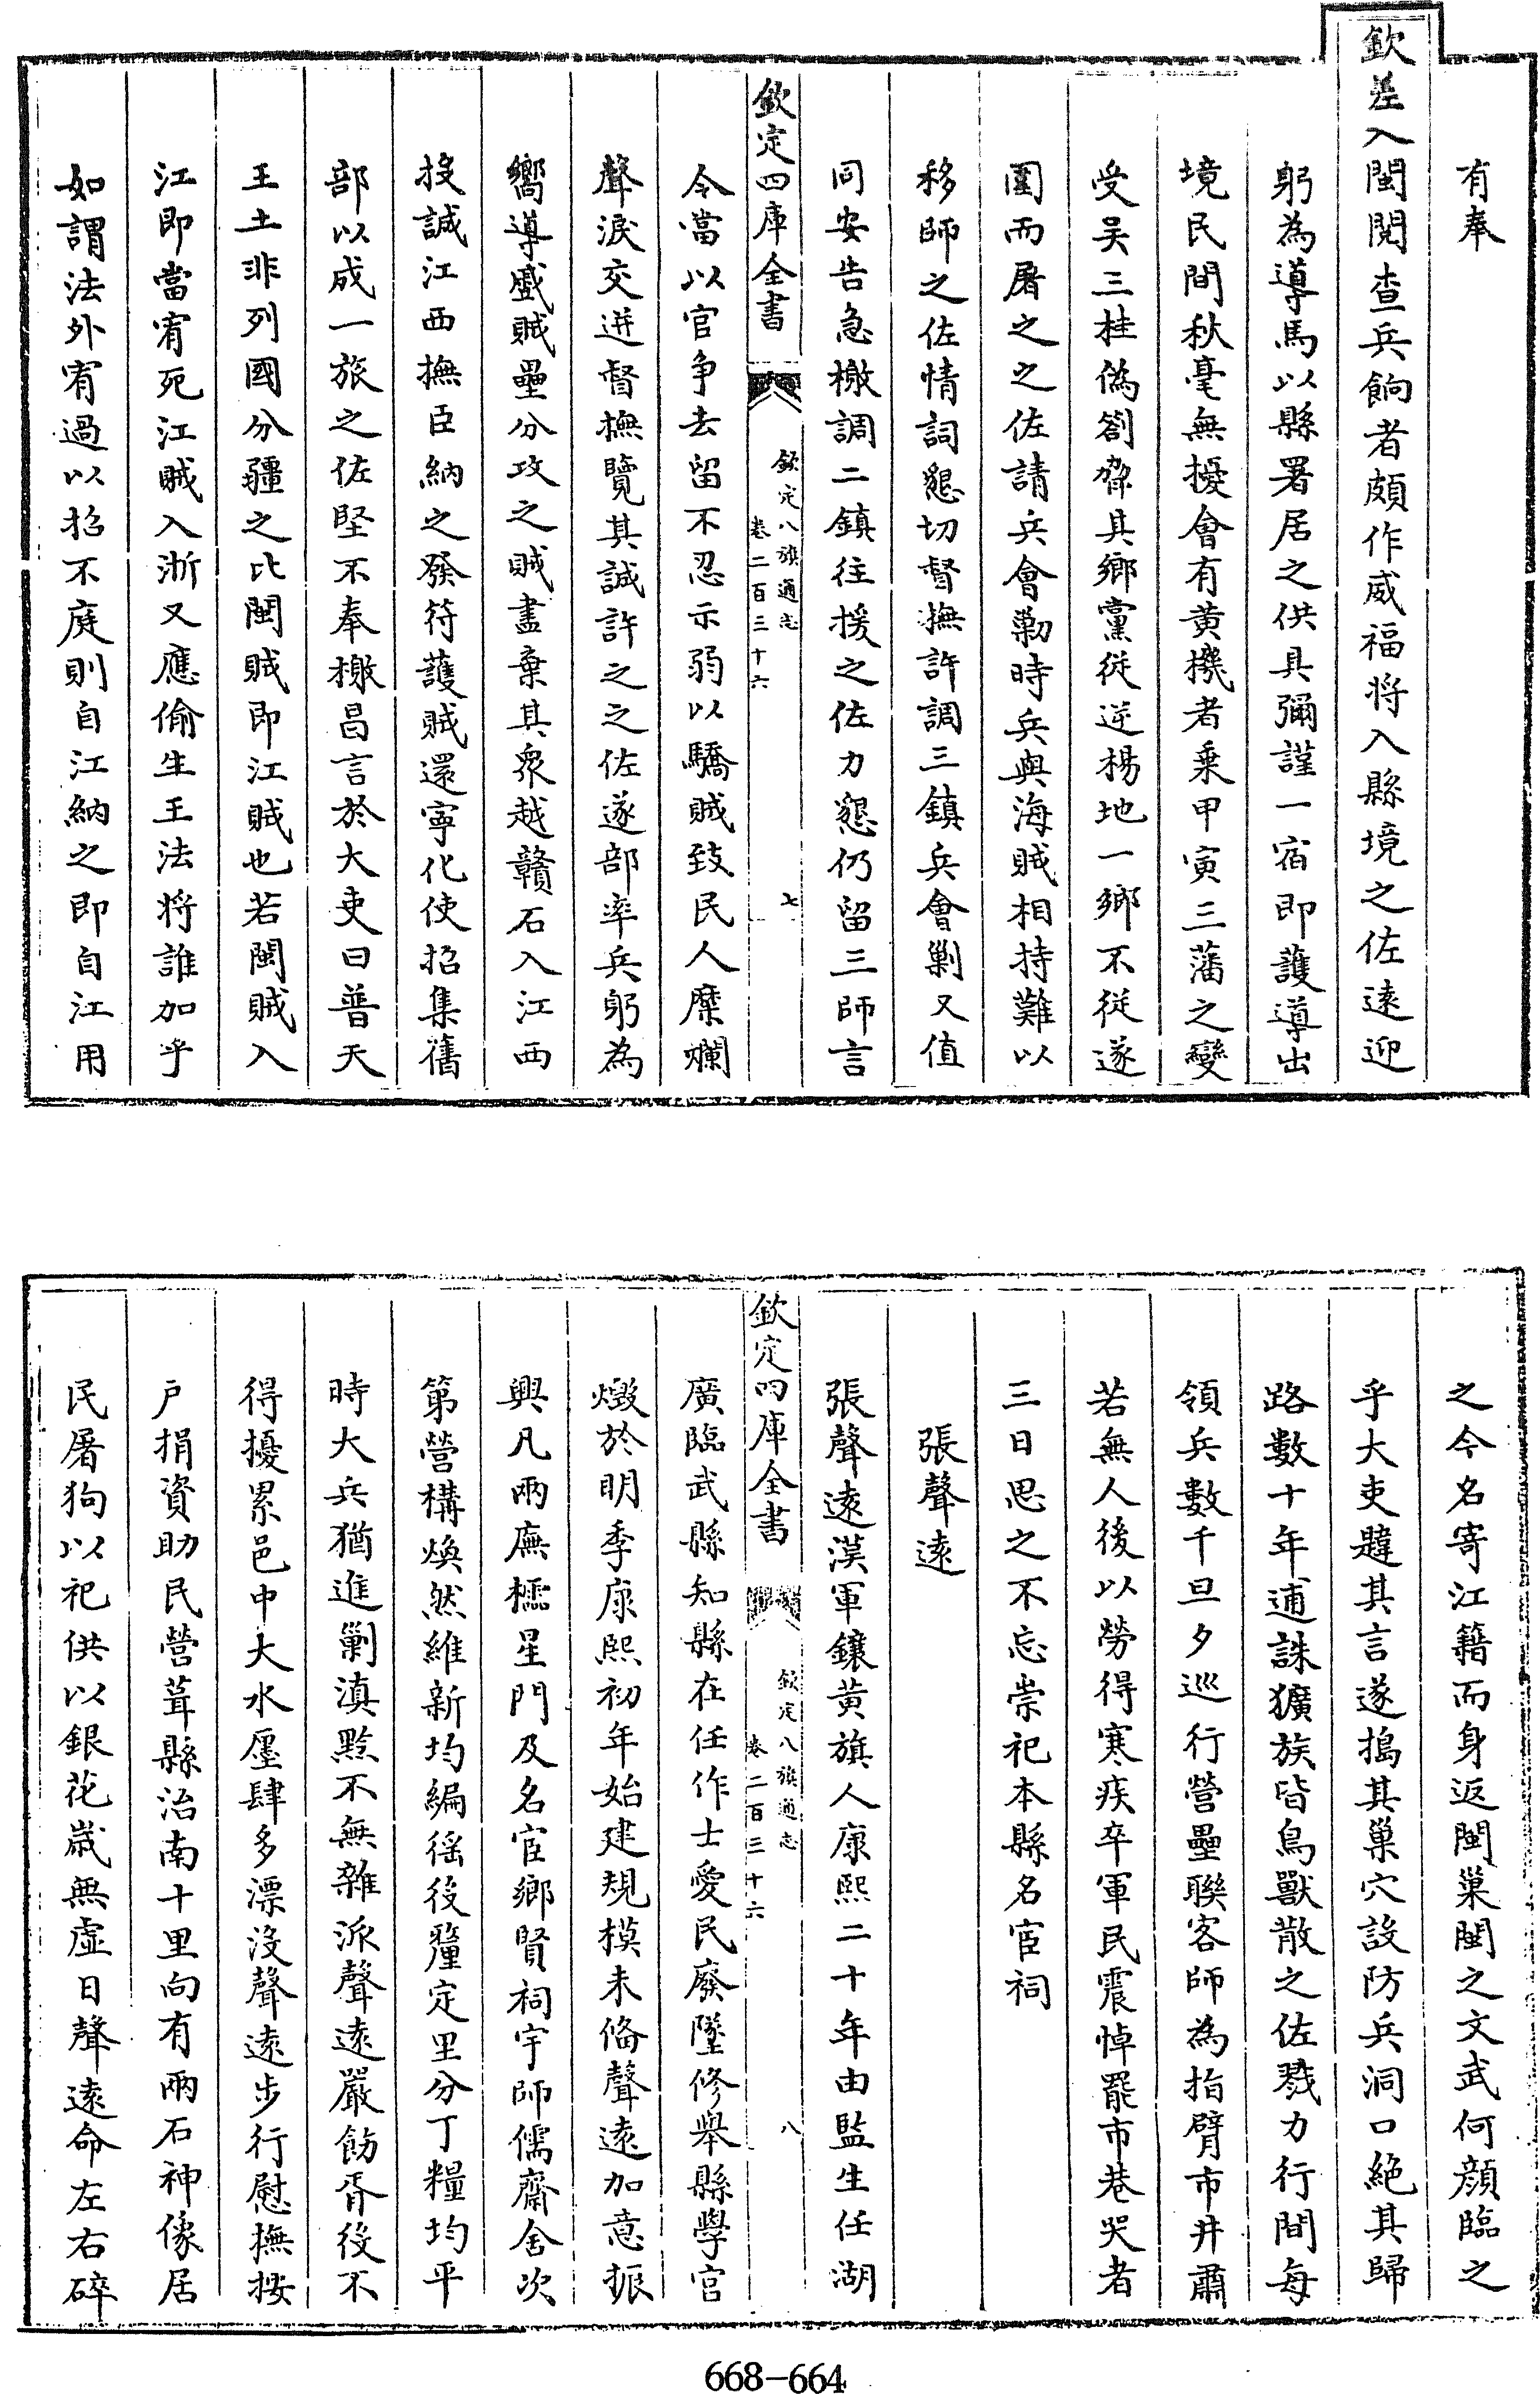 有奉
欽差入閩閱查兵餉者頗作威福將入縣境之佐逺迎
躬為導馬以縣署居之供具彌謹一宿即護導出
境民間秋毫無擾會有黄機者乗甲寅三藩之變
受吴三桂偽劄脅其鄉黨從逆楊地一鄉不從遂
圍而屠之之佐請兵會勦時兵與海賊相持難以
移師之佐情詞懇切督撫許調三鎮兵會剿又值
同安告急檄調二鎮往援之佐力懇仍留三師言
欽定四庫全書
欽定八旗通志
卷二百三十六
七
令當以官争去留不忍示弱以驕賊致民人糜爛
聲淚交迸督撫覽其誠許之之佐遂部率兵躬為
嚮導盛賊壘分攻之賊盡棄其衆越贛石入江西
投誠江西撫臣納之發符護賊還寧化使招集舊
部以成一旅之佐堅不奉檄昌言於大吏曰普天
王土非列國分疆之比閩賊即江賊也若閩賊入
江即當宥死江賊入浙又應偷生王法將誰加乎
如謂法外宥過以招不庭則自江納之即自江用
之今名寄江籍而身返閩巢閩之文武何顔臨之
乎大吏韙其言遂搗其巢穴設防兵洞口絶其歸
路數十年逋誅獷族皆鳥獸散之佐戮力行間每
領兵數千旦夕巡行營壘聯客師為指臂市井肅
若無人後以勞得寒疾卒軍民震悼罷市巷哭者
三日思之不忘崇祀本縣名宦祠
張聲逺
張聲逺漢軍鑲黄旗人康熙二十年由監生任湖
欽定四庫全書
欽定八旗通志
卷二百三十六
八
廣臨武縣知縣在任作士愛民廢墜修舉縣學宫
燬於明季康熙初年始建規模未備聲逺加意振
興凡兩廡櫺星門及名宦鄉賢祠宇師儒齋舍次
第營構煥然維新均編徭役釐定里分丁糧均平
時大兵猶進剿滇黔不無雜派聲逺嚴飭胥役不
得擾累邑中大水廛肆多漂沒聲逺步行慰撫按
戸捐資助民營葺縣治南十里向有兩石神像居
民屠狗以祀供以銀花嵗無虚日聲逺命左右碎
668-664